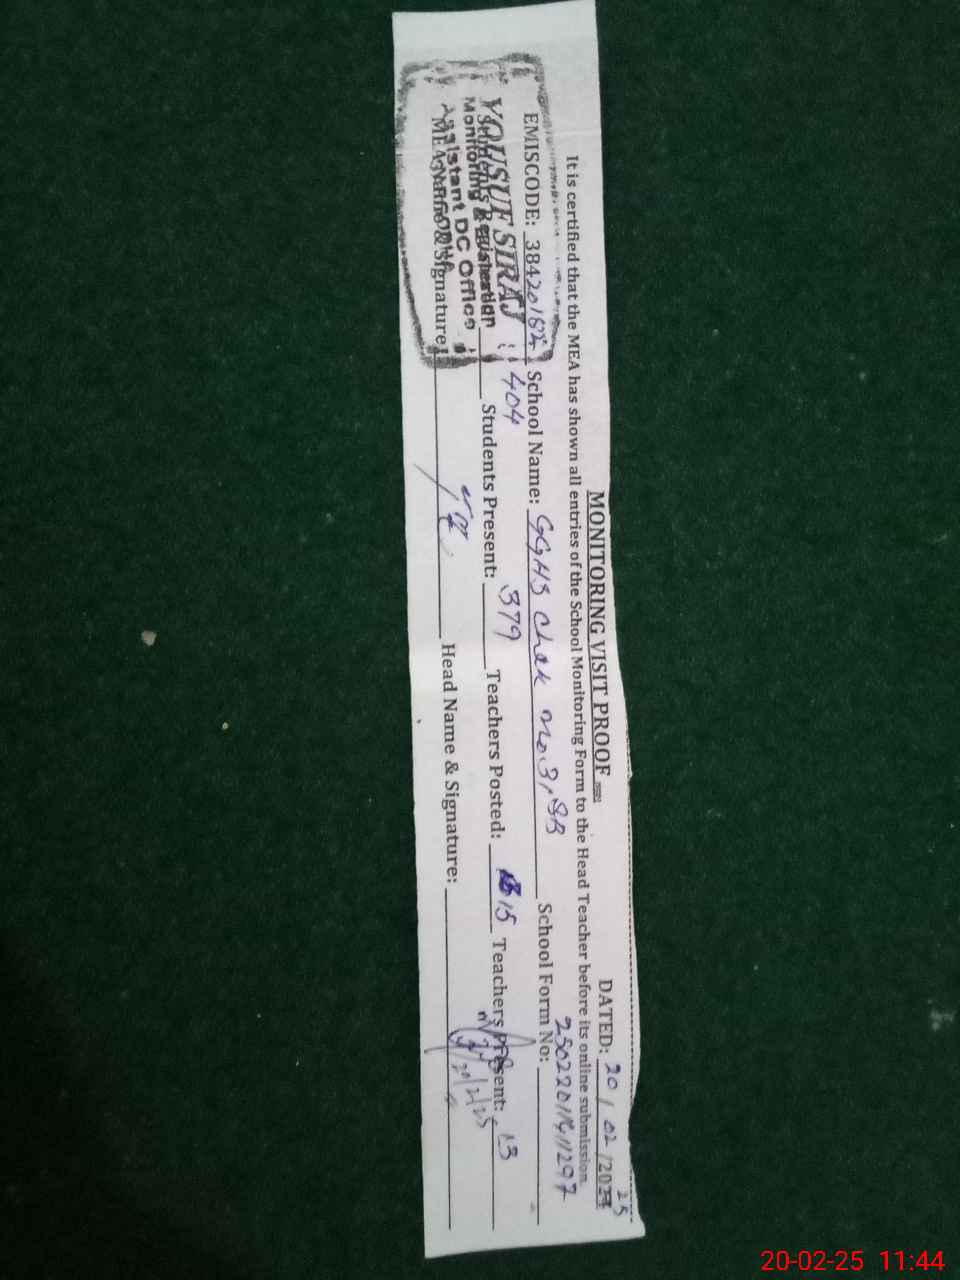 MONITORING VISIT PROOF
DATED: 20 / 02 / 2025
It is certified that the MEA has shown all entries of the School Monitoring Form to the Head Teacher before its online submission.
EMISCODE: 38420182 School Name: GGHS Chak No.31 SB School Form No:
Students Registration 404 Students Present: 379 Teachers Posted: 15 Teachers Present: 13
MEA Name & Signature Head Name & Signature:
YOUSUF SIRAJ
Monitoring & Evaluation
Assistant DC Office
SARGODHA
20/2/25
20-02-25 11:44